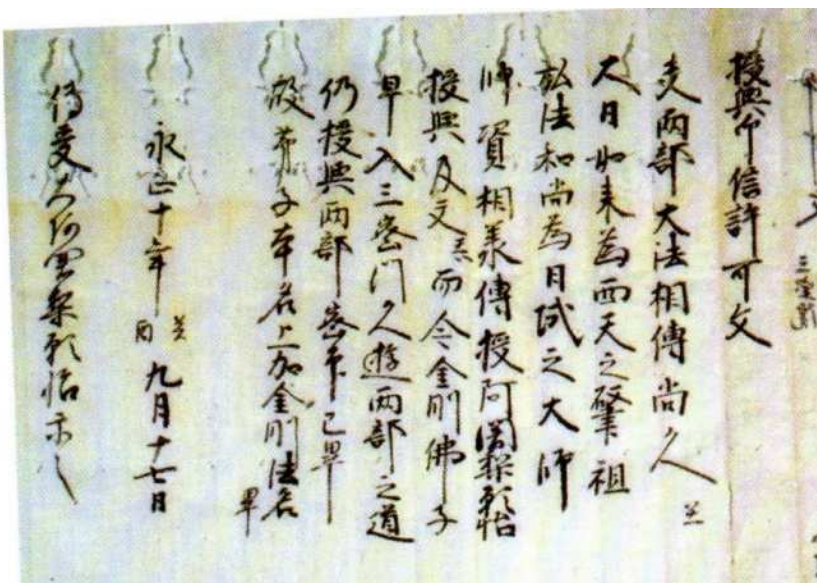 授與印信許可文
夫両部大法相傳尚久矣
大日如来為西天之肇祖
弘法和尚為日域之大師
師資相承傳授阿闍梨頼怡
授與及文 而今金剛佛子
早入三密門久遊両部之道
仍授與両部密印已畢
故弟子本名上加金剛法名畢
永正十年 九月十七日
傳受大阿闍梨頼怡示之